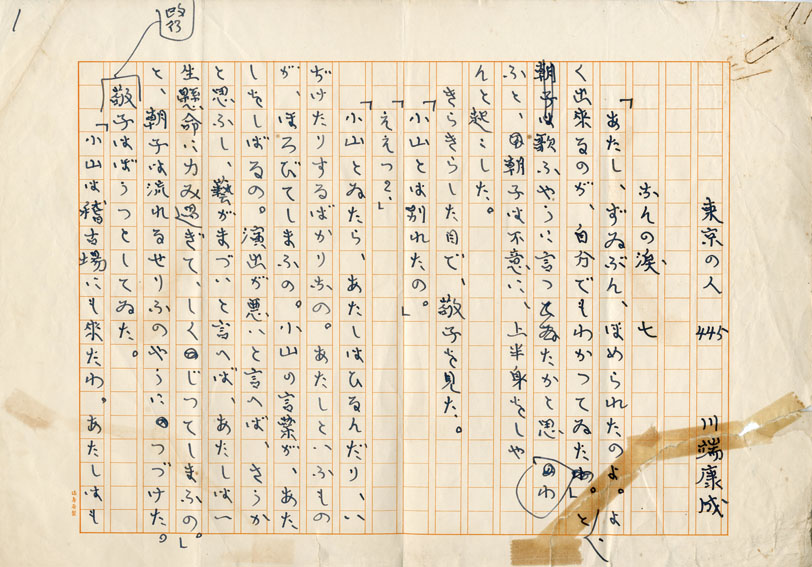 1
改行
東京の人 445 川端康成
なんの涙 七
「あたし、ずゐぶん、ほめられたのよ。よ
く出来るのが、自分でもわかつてゐたわ。」と、
朝子は歌ふやうに言つてゐたかと思
ふと、朝子は不意に、上半身をしや
んと起こした。
きらきらした目で、敬子を見た。
「小山とは別れたの。」
「ええつ?」
「小山とゐたら、あたしはひるんだり、い
ぢけたりするばかりなの。あたしといふもの
が、ほろびてしまふの。小山の言葉が、あた
しをしばるの。演出が悪いと言へば、さうか
と思ふし、藝がまづいと言へば、あたしは一
生懸命に力み過ぎて、しくじつてしまふの。」
と、朝子は流れるせりふのやうにつづけた。
敬子はぼうつとしてゐた。
「小山は稽古場にも來たわ。あたしはも